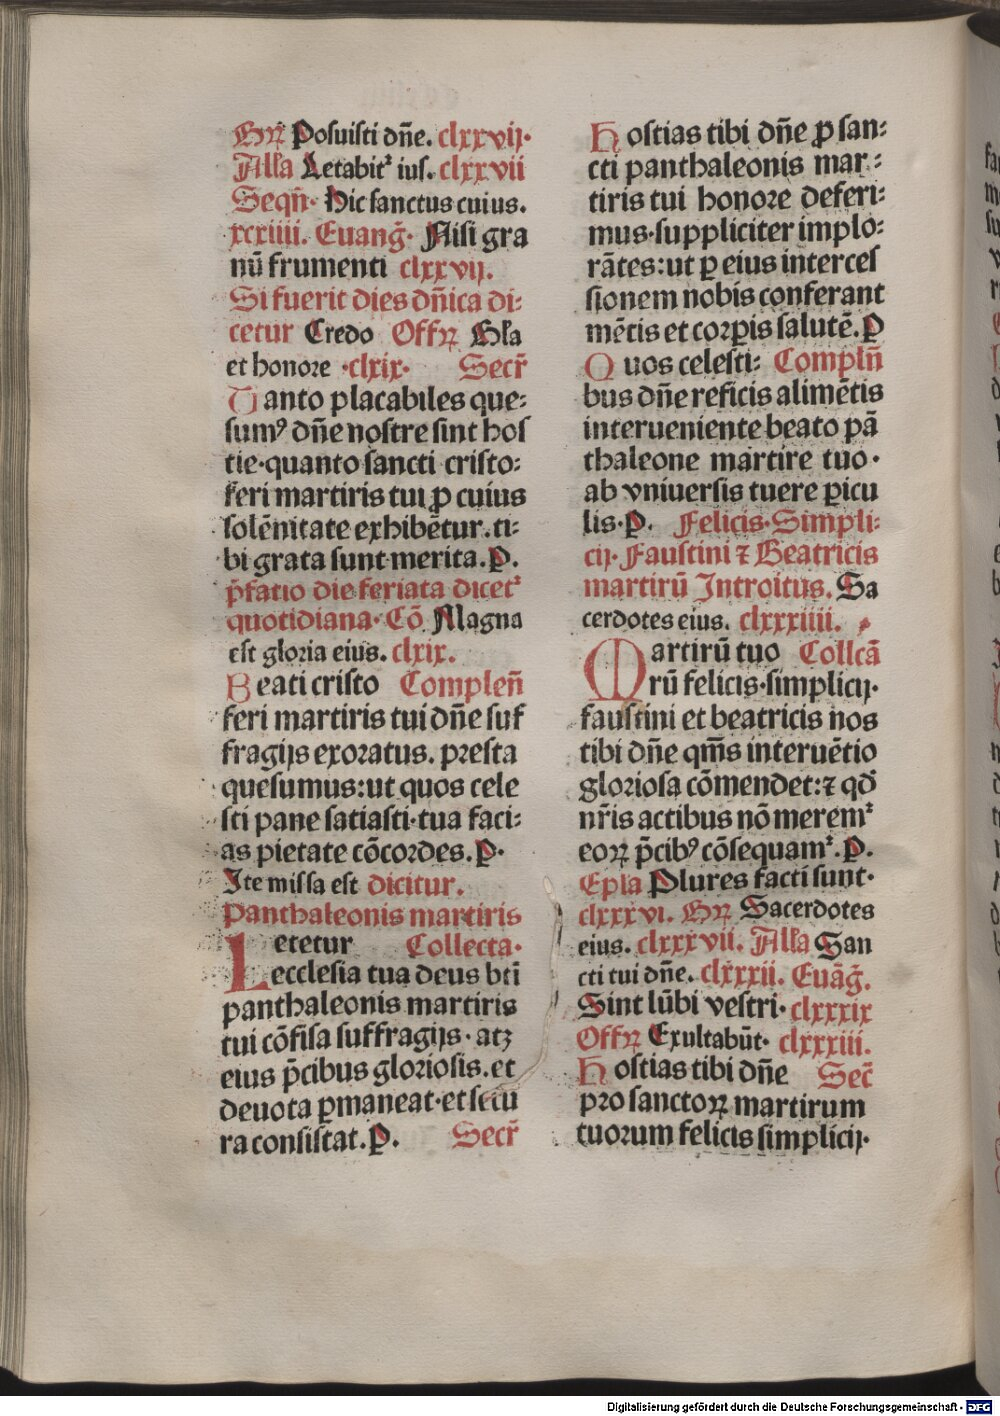 Grꝝ Posuisti dñe. clxxvij·
Alľa Letabitᷣ ius. clxxvii
Seqñ· Hic sanctus cuius.
xcxiiii. Euang̃· Nisi gra
nũ frumenti clxxvij.
Si fuerit dies dñica di⸗
cetur Credo Offꝝ Gľa
et honore ·clxix· Secr̃
Tanto placabiles que⸗
sumꝰ dñe nostre sint hos
tie·quanto sancti cristo⸗
feri martiris tui ꝓ cuius
solẽnitate exhibẽtur.ti⸗
bi grata sunt merita.P.
p̃fatio die feriata dicetᷣ
quotidiana· Cõ Magna
est gloria eius. clxix.
Beati cristo Compleñ
feri martiris tui dñe suf
fragijs exoratus. presta
quesumus:ut quos cele
sti pane satiasti·tua faci⸗
as pietate cõcordes.P·
Ite missa est dicitur.
Panthaleonis martiris
Letetur Collecta·
ecclesia tua deus bti̅
panthaleonis martiris
tui cõfisa suffragijs· atꝫ
eius p̃cibus gloriosis.et
deuota ꝑmaneat·et secu
ra consistat.P. Secr̃
Hostias tibi dñe ꝓ san⸗
cti panthaleonis mar⸗
tiris tui honore deferi⸗
mus·suppliciter implo⸗
rãtes:ut ꝑ eius interces
sionem nobis conferant
mẽtis et corꝑis salutẽ.P
Quos celesti⸗ Compľñ
bus dñe reficis alimẽtis
interueniente beato pã
thaleone martire tuo·
ab vniuersis tuere ꝑicu
lis·P. Felicis·Simpli⸗
cij· Faustini ⁊ Beatricis
martirũ Introitus. Sa
cerdotes eius. clxxxiiii.
Martirũ tuo Collcã
rũ felicis·simplicij·
faustini et beatricis nos
tibi dñe qm̃s interuẽtio
gloriosa cõmendet:⁊ qd̃
nr̃is actibus nõ meremᷣ
eoꝝ p̃cibꝰ cõsequamᷣ.P.
Epľa Plures facti sunt·
clxxxvi. Grꝝ Sacerdotes
eius. clxxxvii. Alľa San
cti tui dñe. clxxxii. Euãg̃.
Sint lũbi vestri· clxxxix
Offꝝ Exultabũt· clxxxiii.
Hostias tibi dñe Sec̃
pro sanctoꝝ martirum
tuorum felicis simplicij·
Digitalisierung gefördert durch die Deutsche Forschungsgemeinschaft - DFG